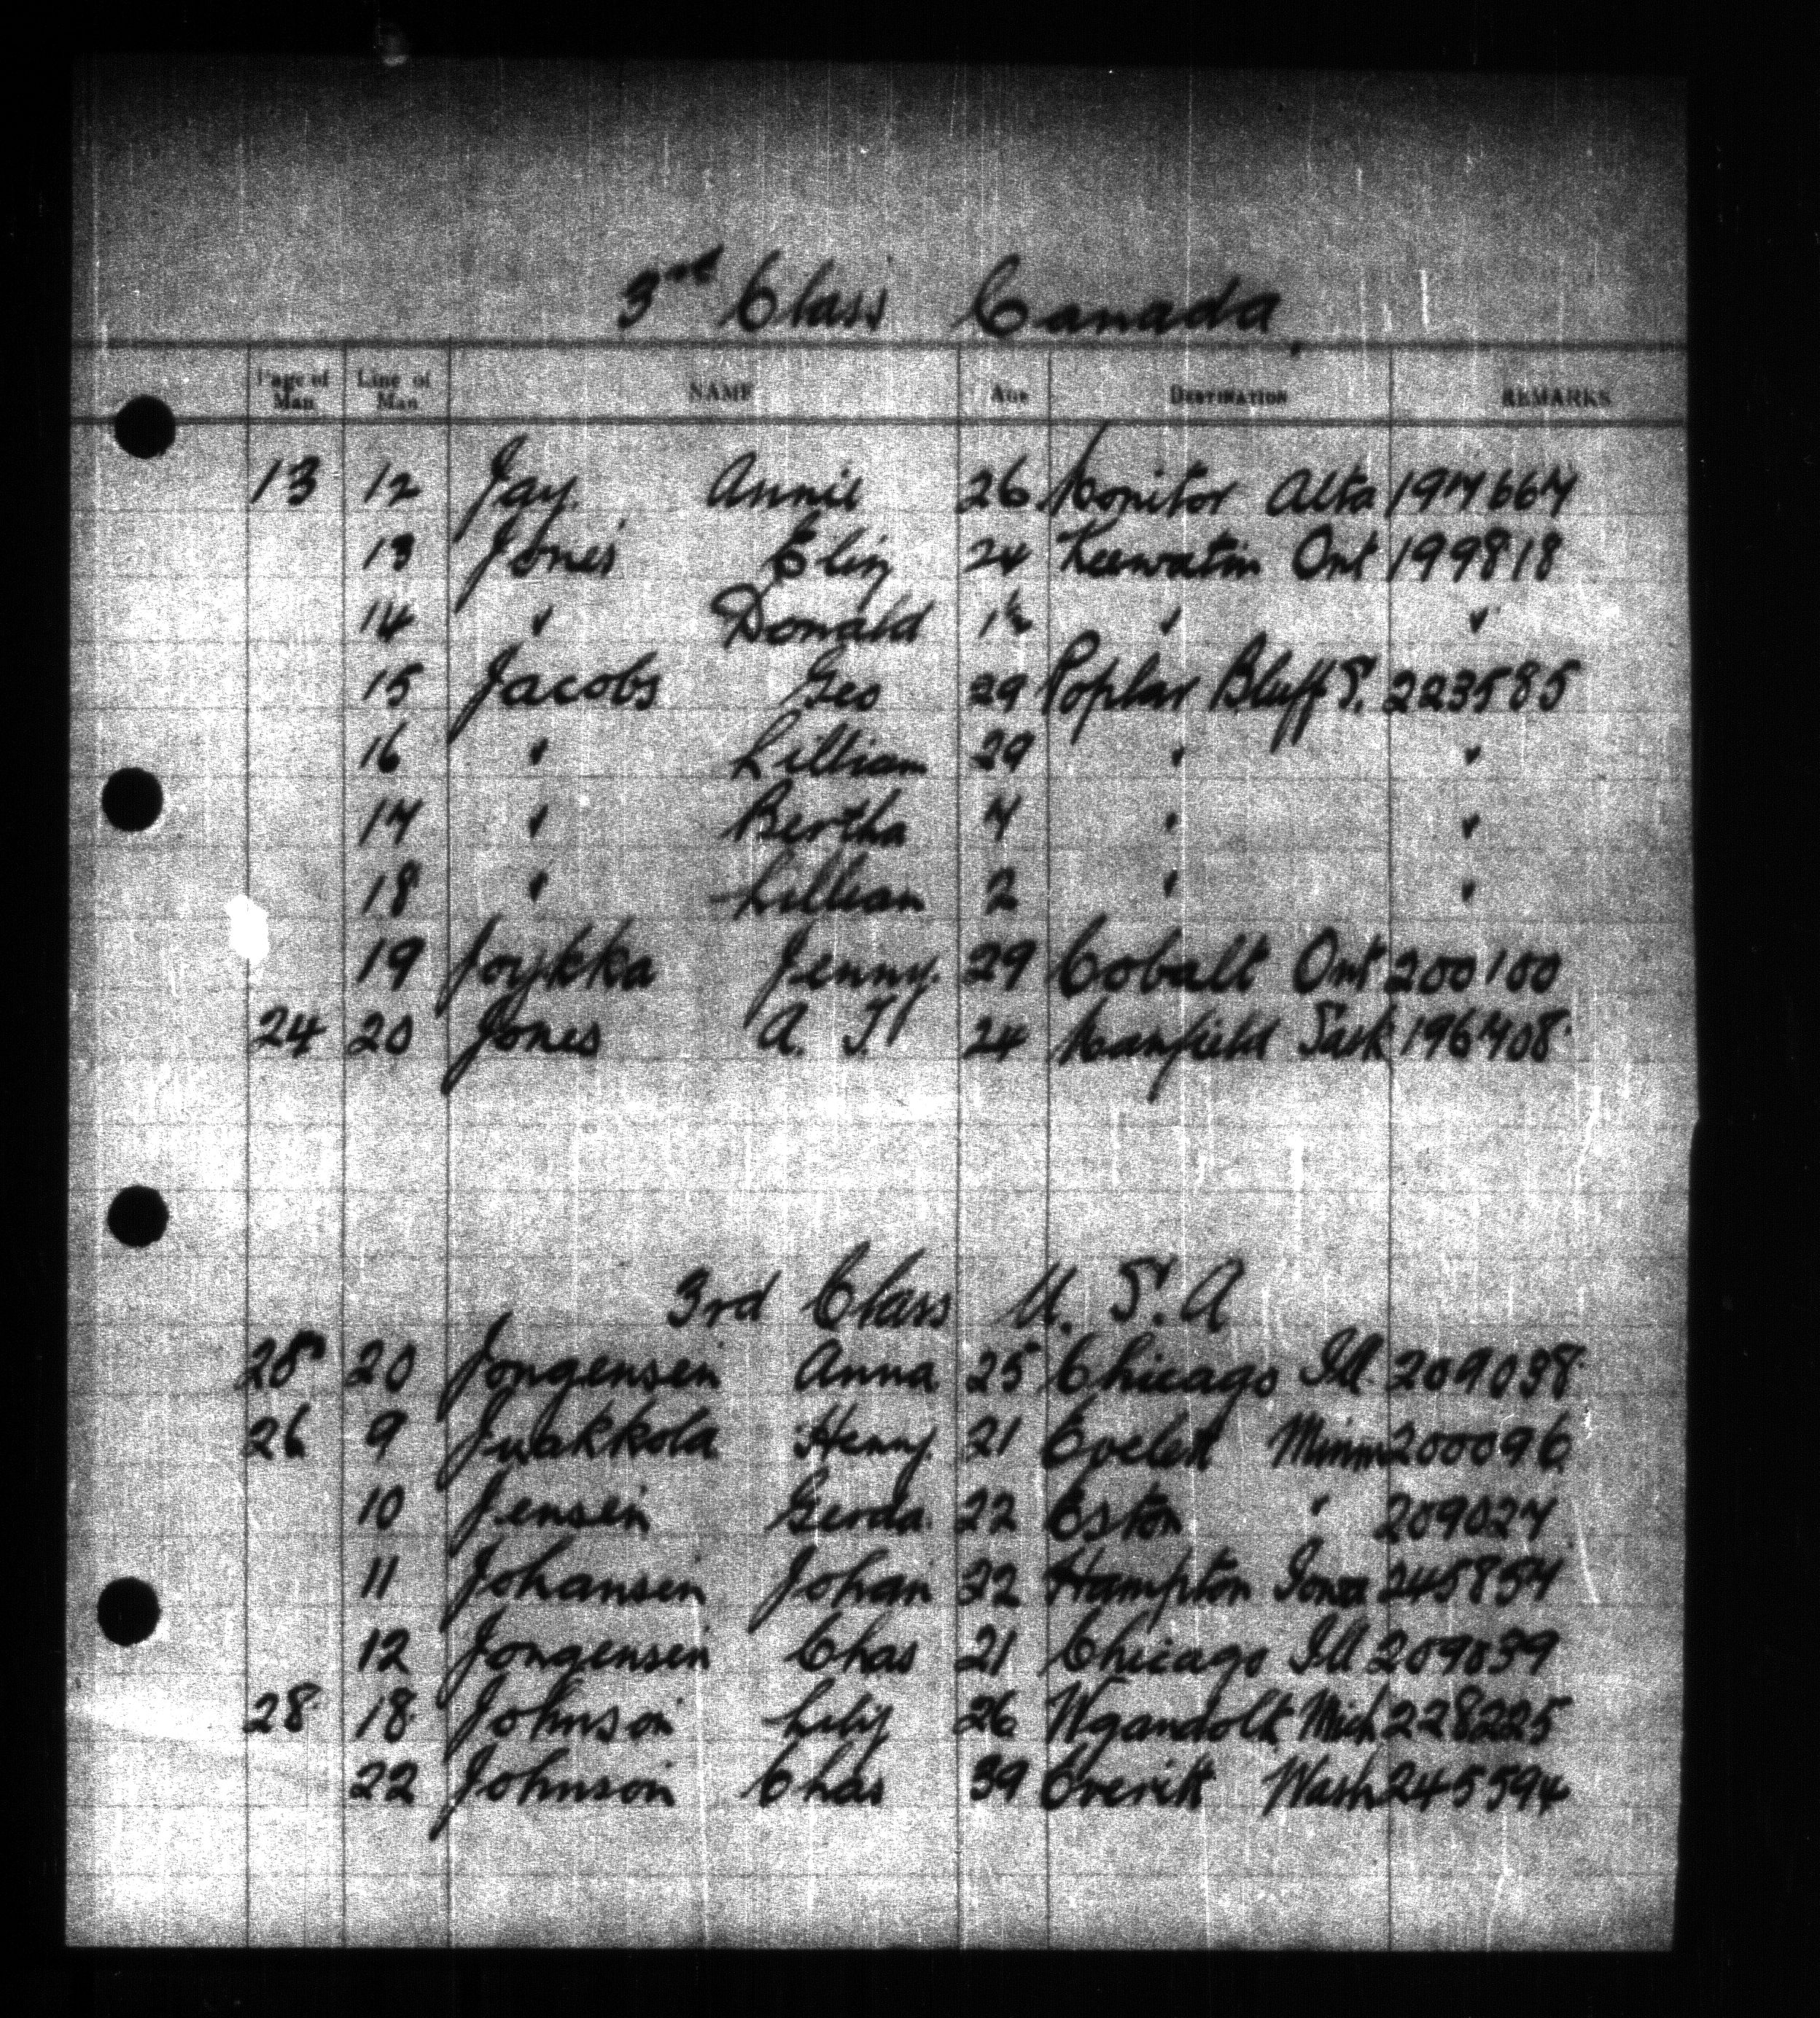 3rd Class Canada
Page of Man Line of Man NAME Age DESTINATION REMARKS
13 12 Jay Annie 26 Monitor Alta 197667
13 Jones Eliz 24 Keewatin Ont 199818
14 " Donald 1½ " "
15 Jacobs Geo 29 Poplar Bluff S. 223585
16 " Lillian 29 " "
17 " Bertha 7 " "
18 " Lillian 2 " "
19 Joykka Jenny 29 Cobalt Ont 200100
24 20 Jones A. J. 24 Manfield Sask 196708
3rd Class U. S. A
25 20 Jongensen Anna 25 Chicago Ill. 209038
26 9 Juakkola Henny 21 Evelett Minn 200096
10 Jensen Gerda 22 Eston " 209027
11 Johansen Johan 22 Hampton Iowa 245857
12 Jongensen Chas 21 Chicago Ill 209039
28 18 Johnson Lily 26 Wyandolt Mich 228225
22 Johnson Chas 39 Everitt Wash 245594